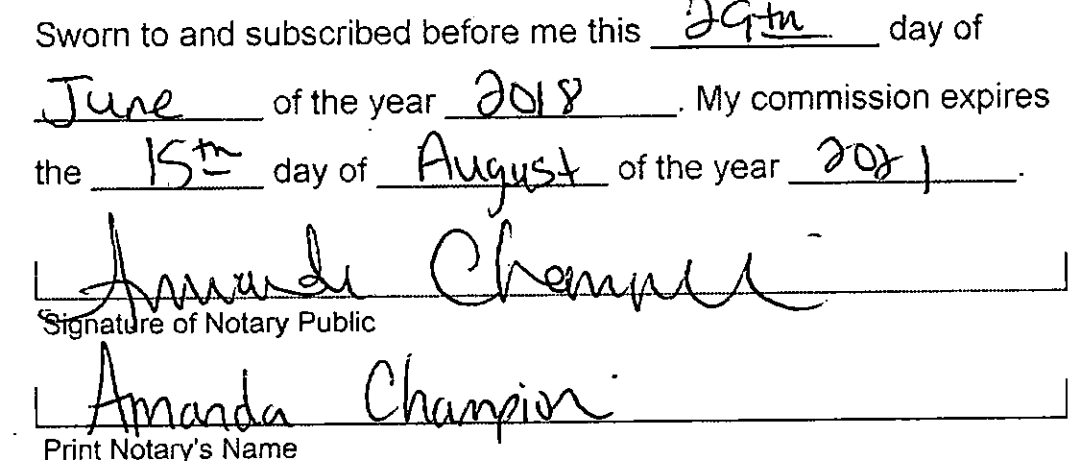 Sworn to and subscribed before me this 29th day of
June of the year 2018. My commission expires
the 15th day of August of the year 2021.
Amanda Champion
Signature of Notary Public
Amanda Champion
Print Notary's Name